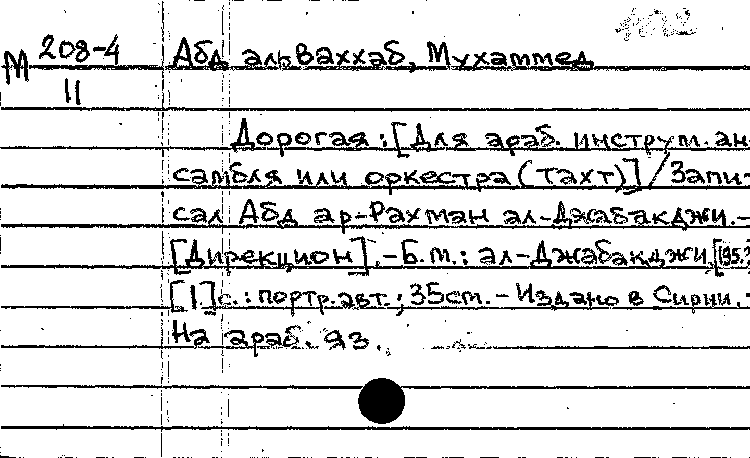 М 208-4 Абд альВаххаб, Мухаммед
11
Дорогая: [Для араб. инструм. ан-
самбля или оркестра (тахт)] / Запи-
сал Абд ар-Рахман ал-Джабакджи.-
[Дирекцион].-Б.м.: ал-Джабакджи,
[1]с.: портр.авт.; 35cm.- Издано в Сирии.-
На араб. яз.